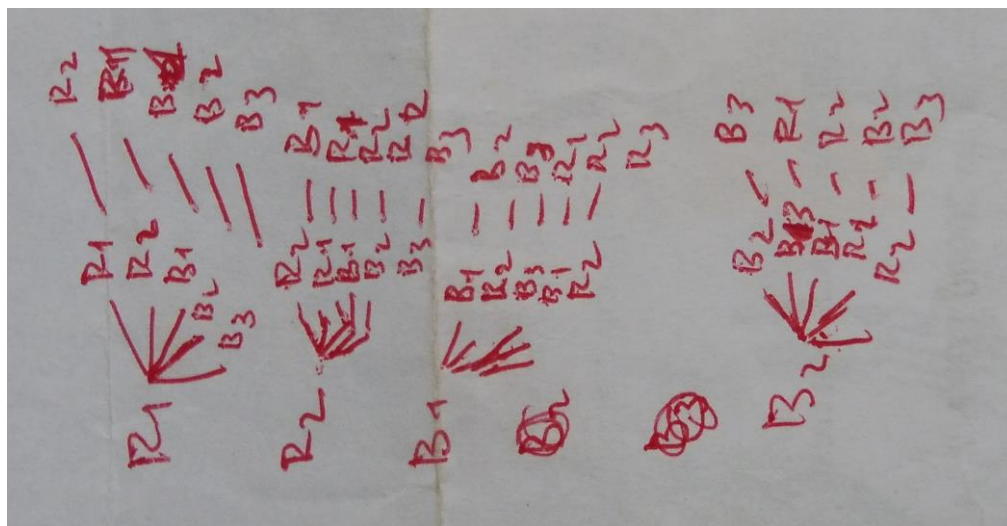 R2 R1 B2 B3
B1 R2 B3
B2 B3 R1 R2 R3
B3 R1 R2 B2 B3
R1 R2 B1 B2 B3
R2 R1 B1 B2 B3
B1 R2 B3 B1 R2
B2 B1 R1 R2
R1 R2 B1 B2